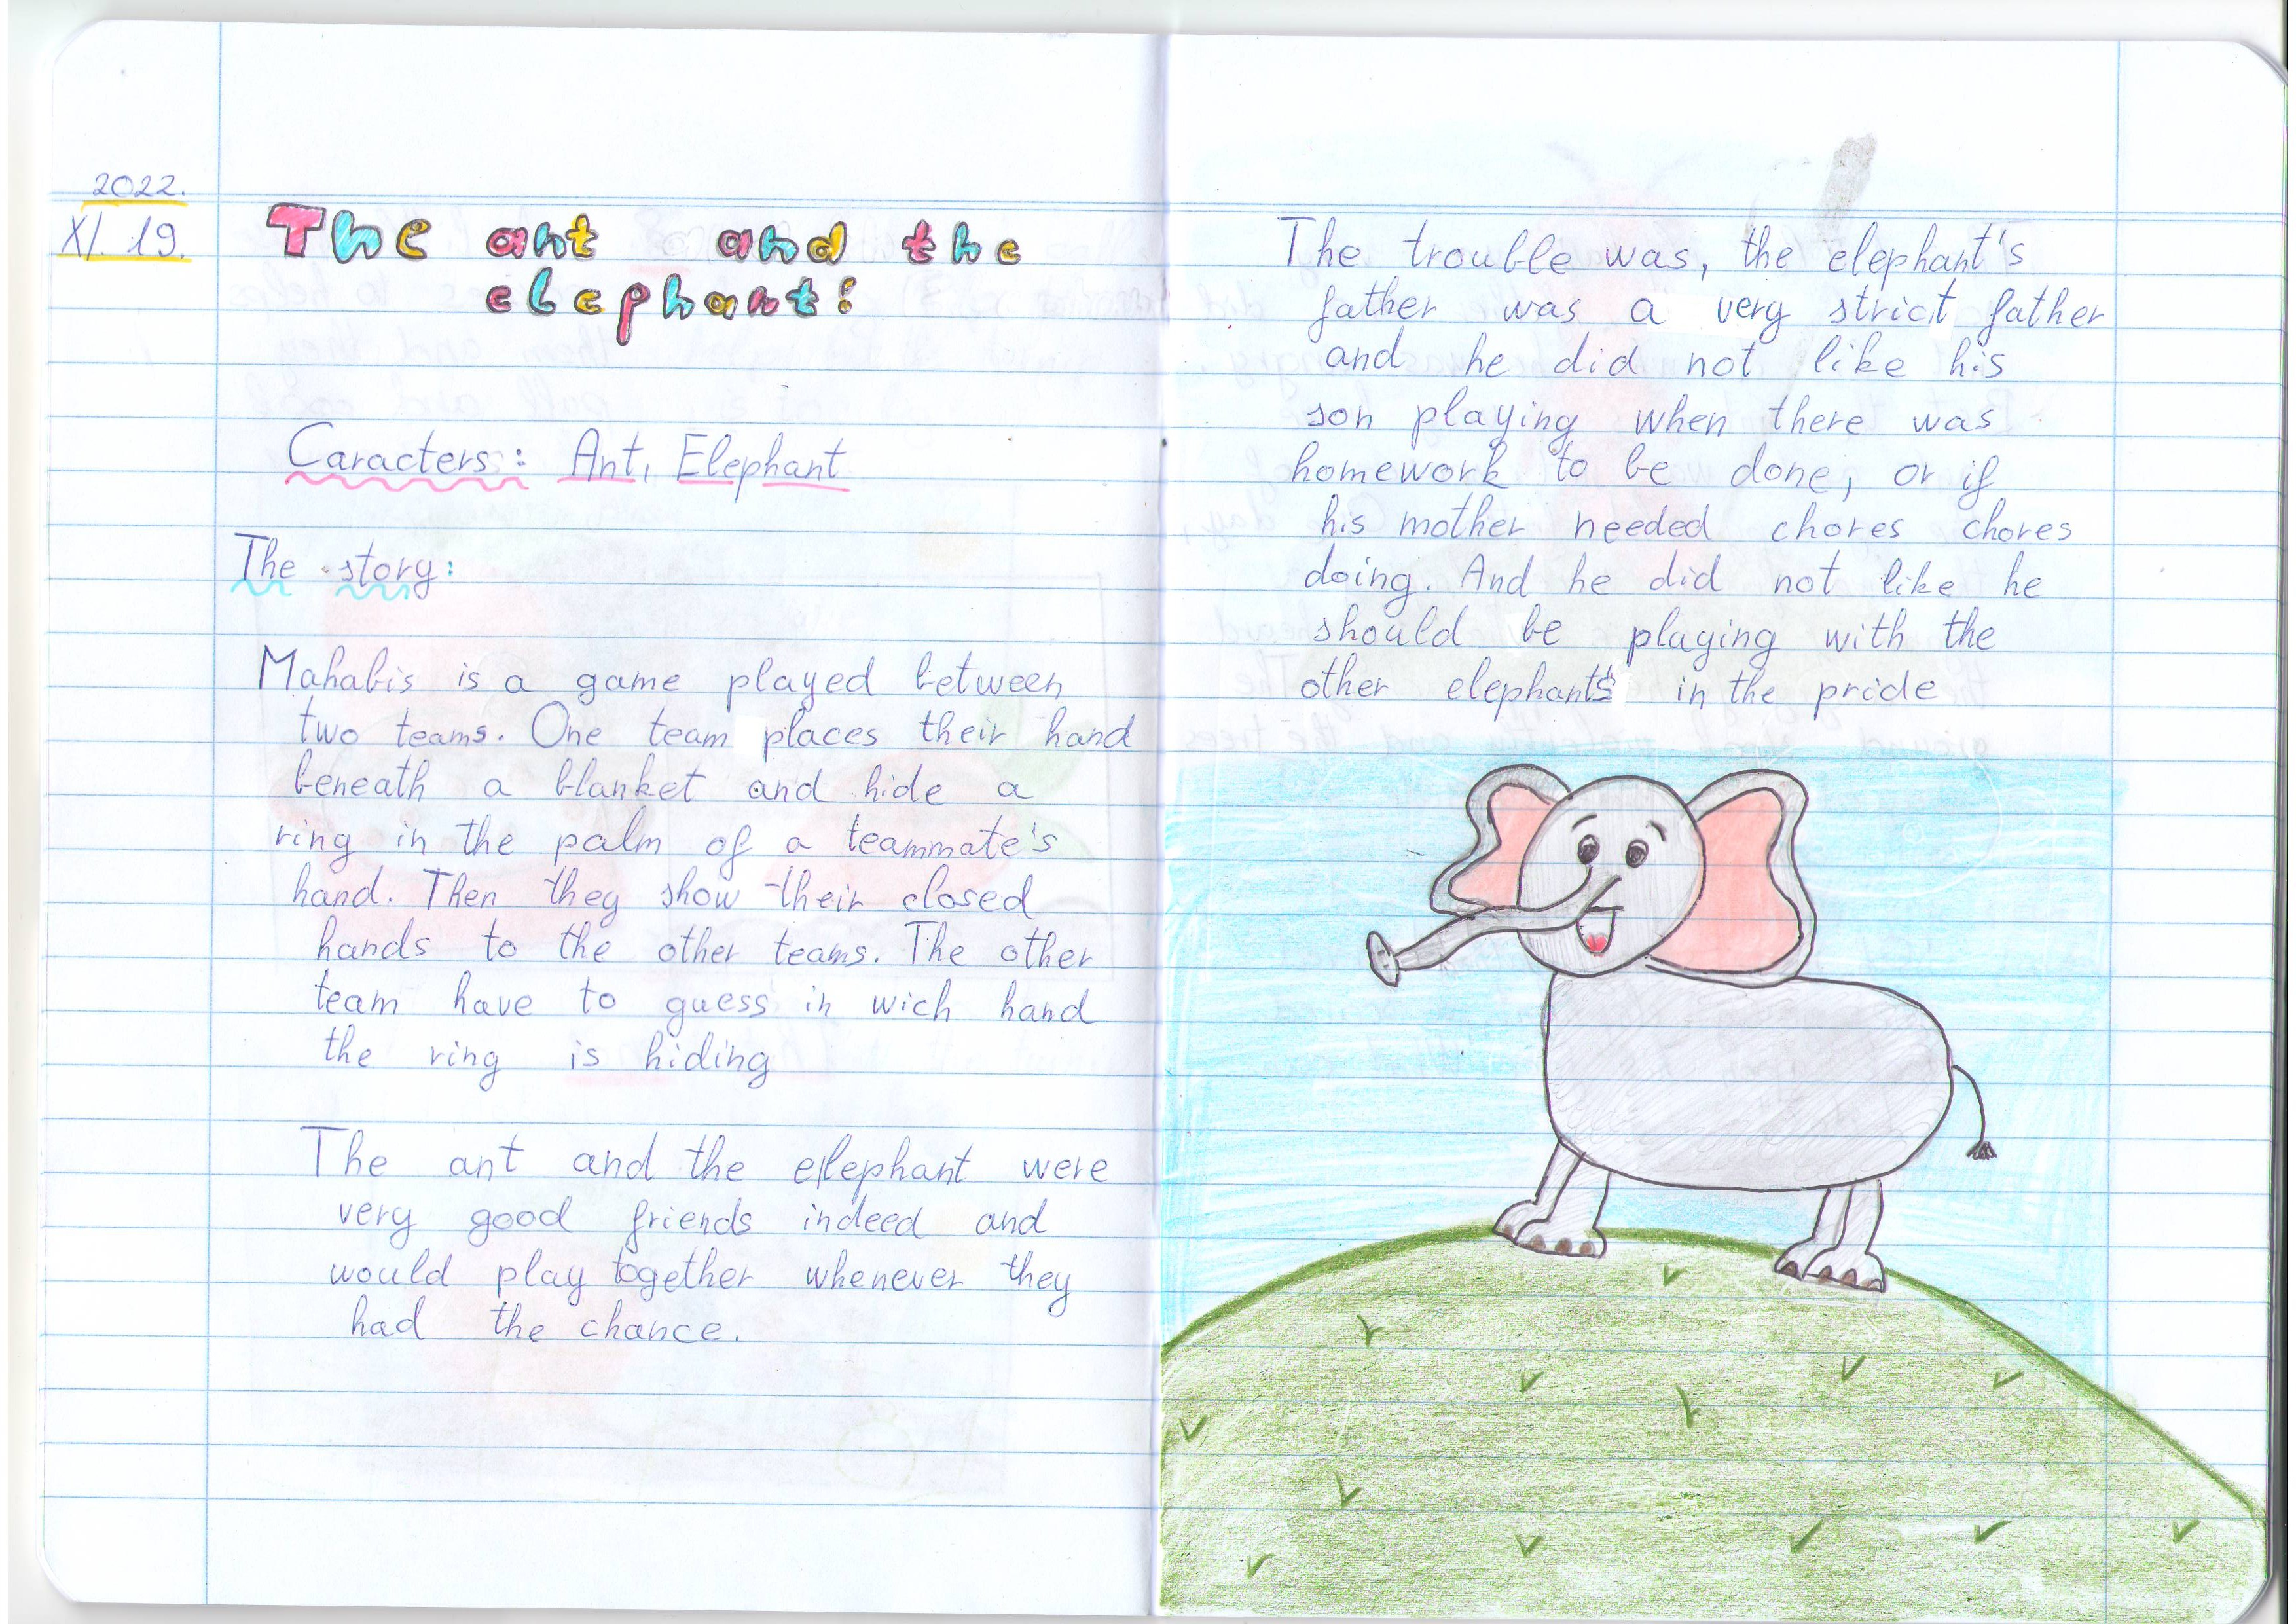 2022.
XI. 19.
The ant and the
elephant:
Caracters: Ant, Elephant
The story:
Mahabis is a game played between
two teams. One team places their hand
beneath a blanket and hide a
ring in the palm of a teammate's
hand. Then they show their closed
hands to the other teams. The other
team have to guess in wich hand
the ring is hiding
The ant and the elephant were
very good friends indeed and
would play together whenever they
had the chance.
The trouble was, the elephant's
father was a very strict father
and he did not like his
son playing when there was
homework to be done, or if
his mother needed chores chores
doing. And he did not like he
should be playing with the
other elephants in the pride